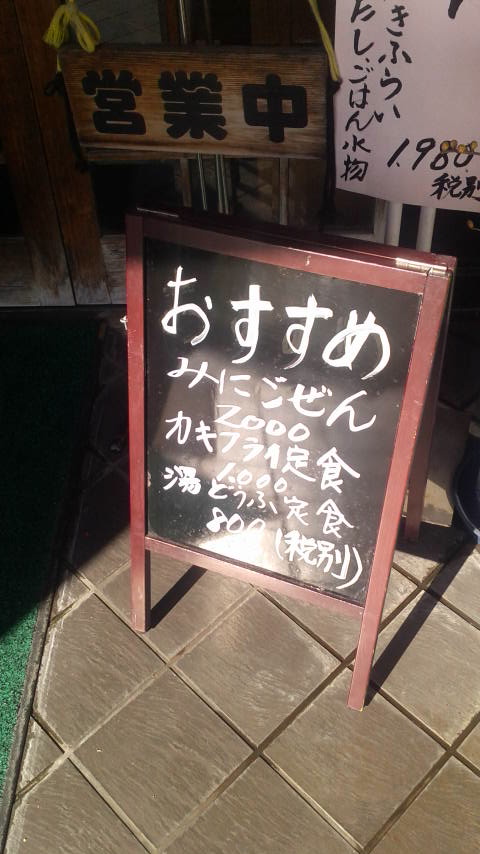 営業中
きふらい
だし、ごはん水物
1.980
税別
おすすめ
みにごぜん
2000
カキフライ定食
1.000
湯どうふ定食
800(税別)